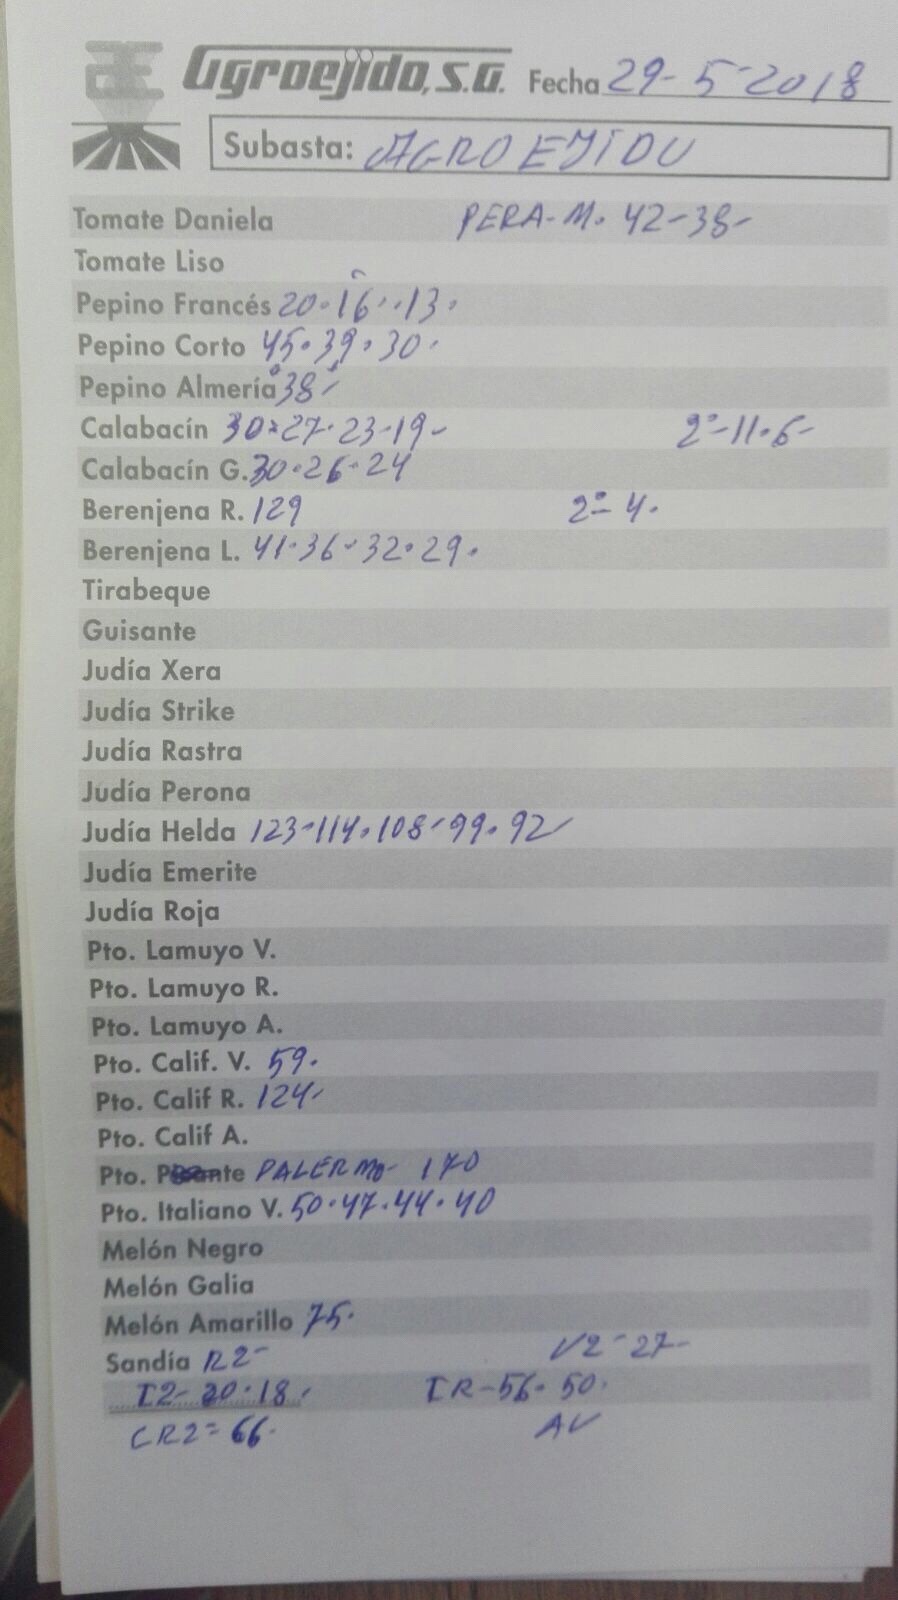 Agroejido, S.A. Fecha 29-5-2018
Subasta: AGROEJIDO
Tomate Daniela PERA-M. 42-38-
Tomate Liso
Pepino Francés 20.16.13.
Pepino Corto 45.39.30.
Pepino Almería 38-
Calabacín 30.27.23-19- 2ª-11.6-
Calabacín G. 30.26.24
Berenjena R. 129 2ª- 4.
Berenjena L. 41.36-32.29.
Tirabeque
Guisante
Judía Xera
Judía Strike
Judía Rastra
Judía Perona
Judía Helda 123-114.108-99.92-
Judía Emerite
Judía Roja
Pto. Lamuyo V.
Pto. Lamuyo R.
Pto. Lamuyo A.
Pto. Calif. V. 59.
Pto. Calif R. 124-
Pto. Calif A.
Pto. Picante PALERMO- 170
Pto. Italiano V. 50.47.44.40
Melón Negro
Melón Galia
Melón Amarillo 75.
Sandía R2- V2-27-
I2-20.18. IR-56-50.
CR2=66. AV